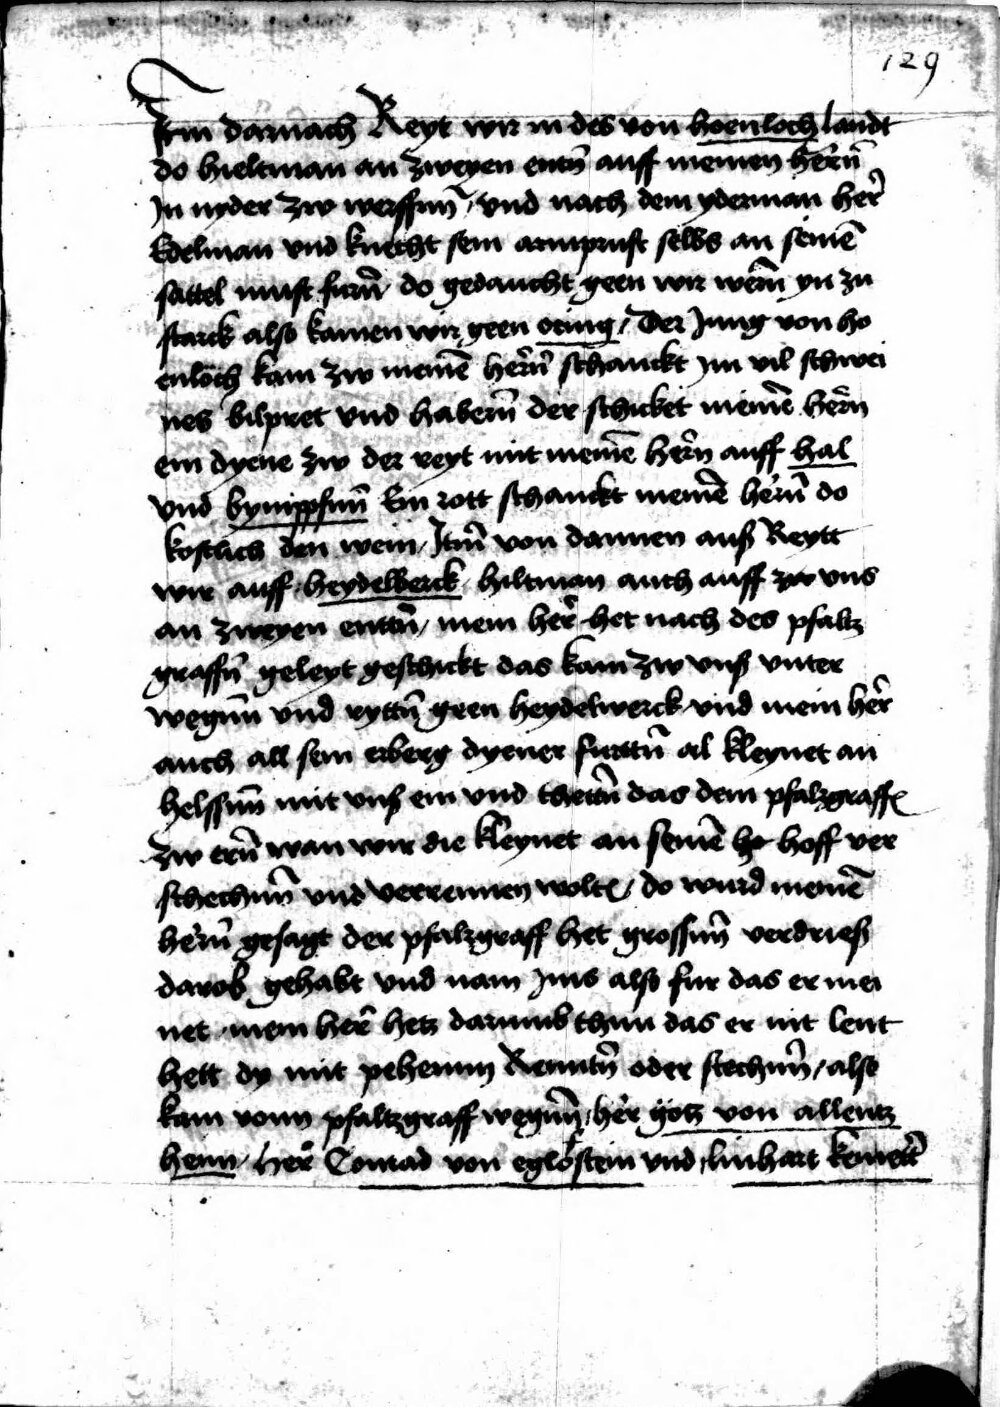 129
Itm darnach Reyt wir in des von hoenloch landt
do hieltman an zweyen entn̄ auff meinen hern̄
In nyder zw werffnn̄ / vnd nach dem yderman her̄
Edelman vnd knecht sein armprust selbs an seinē
sattel must furn̄ do gedaucht geen wir wern̄ yn zu
starck also kamen wir geen oting / Der Jung von ho
enloch kam zw meinē hern̄ schanckt im vil schwei
nes bilpret vnd habern̄ der schicket meinē hern̄
ein dyene zw der reyt mit meinē hern̄ auff hal
vnd bymppfnn̄ Ein rott schanckt meinē hern̄ do
kostlich den wein / Itm̄ von dannen auß Reytt
wir auff heydelberck hiltman auch auff zw vns
an zweyen enttn̄ / mein her̄ het nach des pfaltz
graffn̄ geleyt geschickt das kam zw vnß vnter
wegnn̄ vnd ryttn̄ geen heydelwerck vnd mein her̄
auch all sein erberg dyener furttn̄ al kleynet an
helssnn̄ mit vnß ein vnd thettn̄ das dem pfalzgraff
zw ern̄ wan wir die kleynet an seinē ho hoff ver
stechnn̄ vnd verrennen wolt / do wurd meinē
hern̄ gesagt der pfalzgraff het grossnn̄ verdrieß
darob gehabt vnd nam ims also fur das er mei
net mein her̄ hetz darumb thun das er nit leut
hett dy mit pehemn Renntn̄ oder stechnn̄ / also
kam vonn pfaltzgraff wegnn̄ her götz von allentz
heim / her̄ Conrad von eglofstein vnd linhart kemett̄